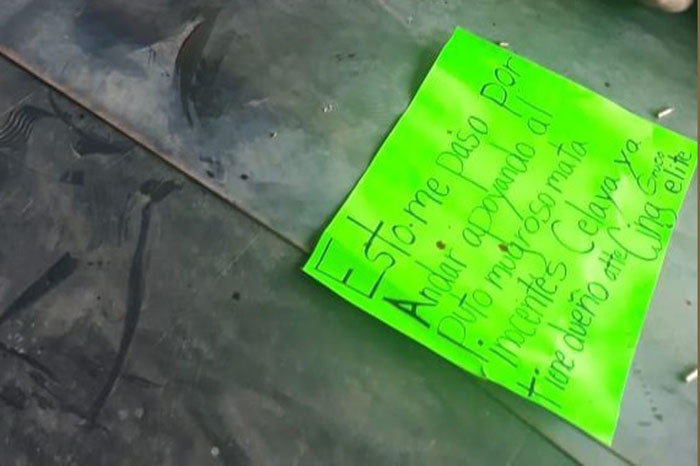 Esto me paso por
Andar apoyando al
puto mugroso mata
inocentes Celaya ya
tiene dueño atte Grupo
Cjng elite